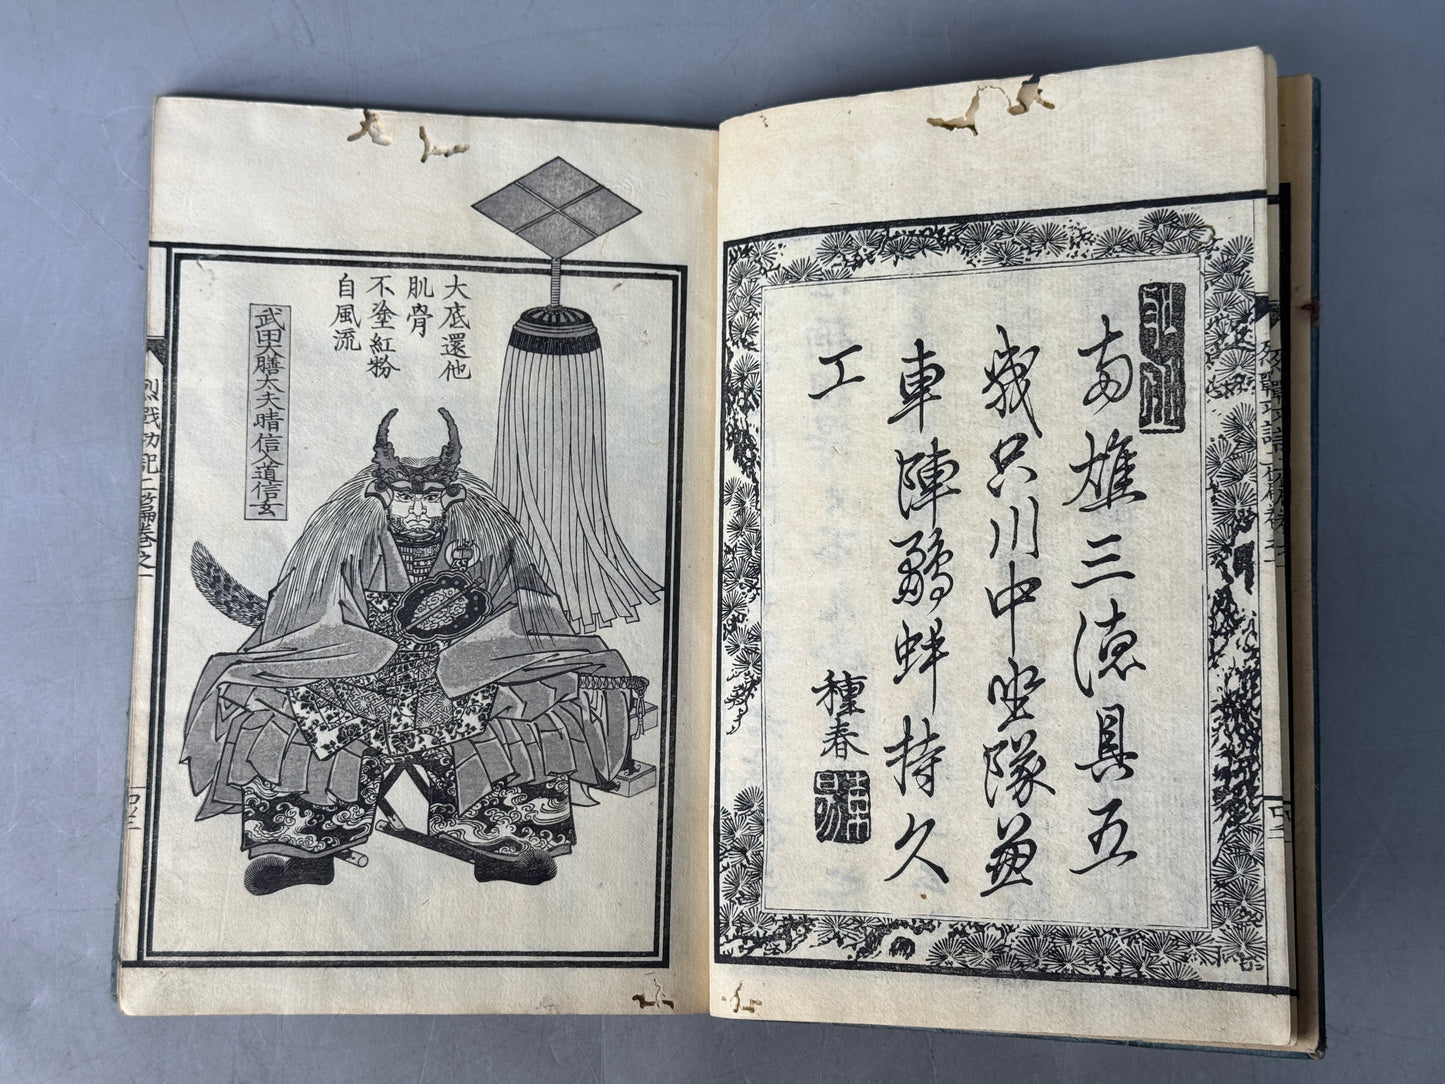 両雄三徳具五
戦只川中坐隊兼
車陣鷸蚌持久
工
種春
大底還他
肌骨
不塗紅粉
自風流
武田大膳大夫晴信入道信玄
烈戰功記二篇巻之一